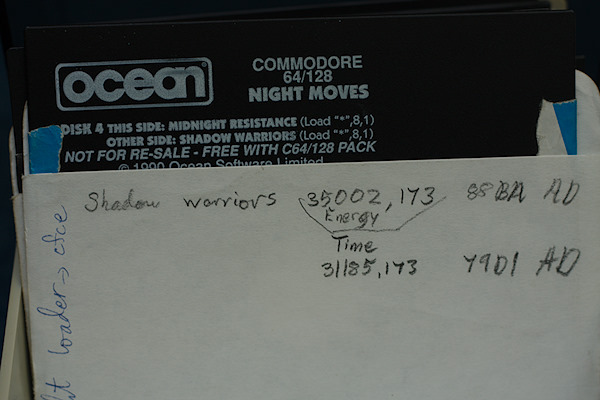 ocean
COMMODORE
64/128
NIGHT MOVES
DISK 4 THIS SIDE: MIDNIGHT RESISTANCE (Load "*",8,1)
OTHER SIDE: SHADOW WARRIORS (Load "*",8,1)
NOT FOR RE-SALE - FREE WITH C64/128 PACK
© 1990 Ocean Software Limited
Shadow warriors 35002,173 88BA AD
Energy
Time
31185,173 79D1 AD
loader->